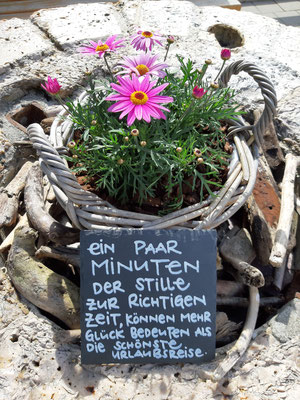 ein PAAR
MINUTEN
DER STILLE
ZUR RICHTIGEN
ZEIT, KÖNNEN MEHR
GLÜCK BEDEUTEN ALS
DIE SCHÖNSTE
URLAUBSREISE.